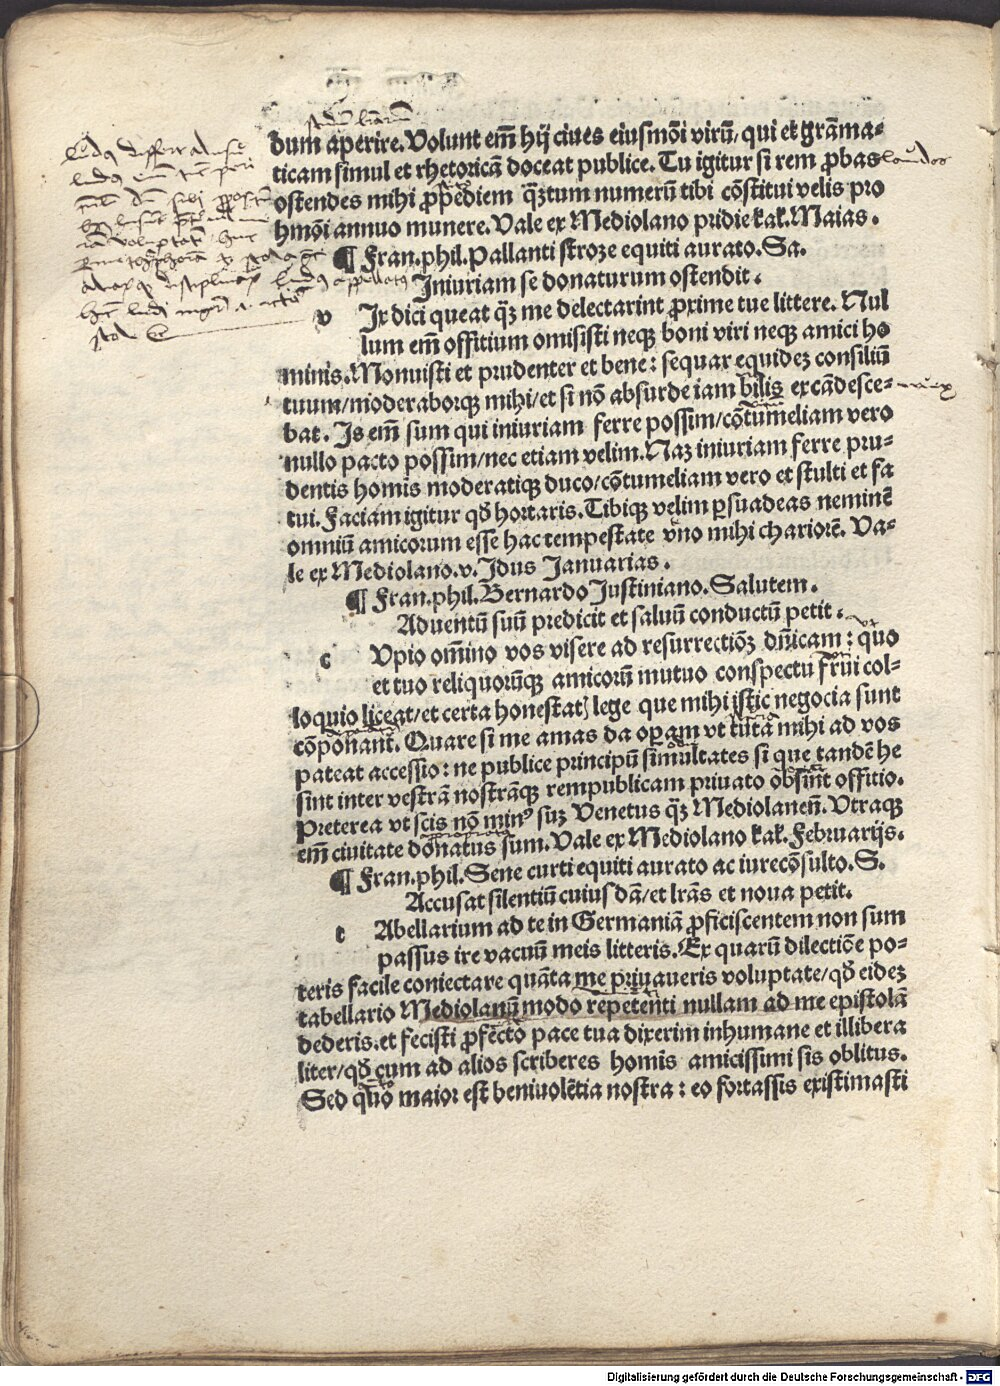 dum aperire. Volunt em̄ hij ciues eiusmōi virū, qui et grāma-
ticam simul et rhetoricā doceat publice. Tu igitur si rem ꝓbas
ostendes mihi ꝓpediem q̄ȝtum numerū tibi cōstitui velis pro
hmōi annuo munere. Vale ex Mediolano pridie kal. Maias.
¶ Fran. phil. Pallanti stroze equiti aurato. Sa.
Iniuriam se donaturum ostendit.
v Ix dici queat q̄ȝ me delectarint ꝓxime tue littere. Nul
lum em̄ offitium omisisti neqȝ boni viri neqȝ amici ho
minis. Monuisti et prudenter et bene: sequar equideȝ consiliū
tuum/moderaborqȝ mihi/et si nō absurde iam bilis excādesce-
bat. Is em̄ sum qui iniuriam ferre possim/cōtumeliam vero
nullo pacto possim/nec etiam velim. Naȝ iniuriam ferre pru-
dentis homīs moderatiqȝ duco/cōtumeliam vero et stulti et fa
tui. Faciam igitur qđ hortaris. Tibiqȝ velim ꝑsuadeas neminē
omniū amicorum esse hac tempestate vno mihi chariorē. Va-
le ex Mediolano. v. Idus Januarias.
¶ Fran. phil. Bernardo Iustiniano. Salutem.
Aduentū suū predicit et saluū conductū petit.
c Vpio om̄ino vos visere ad resurrectiōȝ dn̄icam: quo
et tuo reliquorūqȝ amicorū mutuo conspectu frui col-
loquio liceat/et certa honestatꝭ lege que mihi istic negocia sunt
cōponant̄. Quare si me amas da oꝑam vt tuta mihi ad vos
pateat accessio: ne publice principū simultates si que tandē he
sint inter vestrā nostrāqȝ rempublicam priuato obsint offitio.
Preterea vt scis nō minꝰ suȝ Venetus q̄ȝ Mediolaneñ. Vtraqȝ
em̄ ciuitate donatus sum. Vale ex Mediolano kal. Februarijs.
¶ Fran. phil. Sene curti equiti aurato ac iurecōsulto. S.
Accusat silentiū cuius dā/et lr̄as et noua petit.
t Abellarium ad te in Germaniā ꝓficiscentem non sum
passus ire vacuū meis litteris. Ex quarū dilectiōe po-
teris facile coniectare quāta me priuaueris voluptate/qđ eideȝ
tabellario Mediolanū modo repetenti nullam ad me epistolā
dederis. et fecisti ꝓfecto pace tua dixerim inhumane et illibera
liter/qđ cum ad alios scriberes homīs amicissimi sis oblitus.
Sed q̄no maior est beniuolētia nostra: eo fortassis existimasti
Digitalisierung gefördert durch die Deutsche Forschungsgemeinschaft - DFG